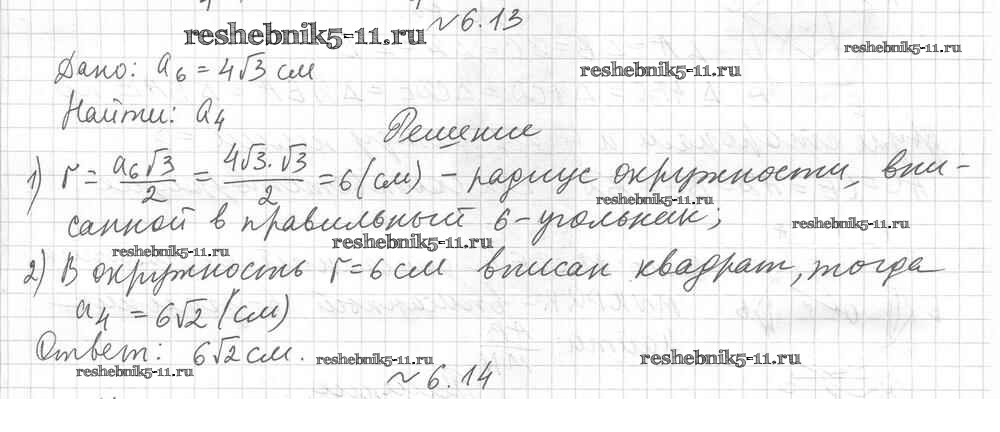 ~ 6.13
reshebnik5-11.ru
reshebnik5-11.ru
Дано: a₆ = 4√3 см
reshebnik5-11.ru
Найти: a₄
Решение
1) r = a₆√3/2 = 4√3·√3/2 = 6 (см) – радиус окружности, впи-
reshebnik5-11.ru
санной в правильный 6-угольник;
reshebnik5-11.ru
reshebnik5-11.ru
reshebnik5-11.ru
2) В окружность r = 6 см вписан квадрат, тогда
a₄ = 6√2 (см)
Ответ: 6√2 см.
reshebnik5-11.ru
reshebnik5-11.ru
reshebnik5-11.ru
~ 6.14